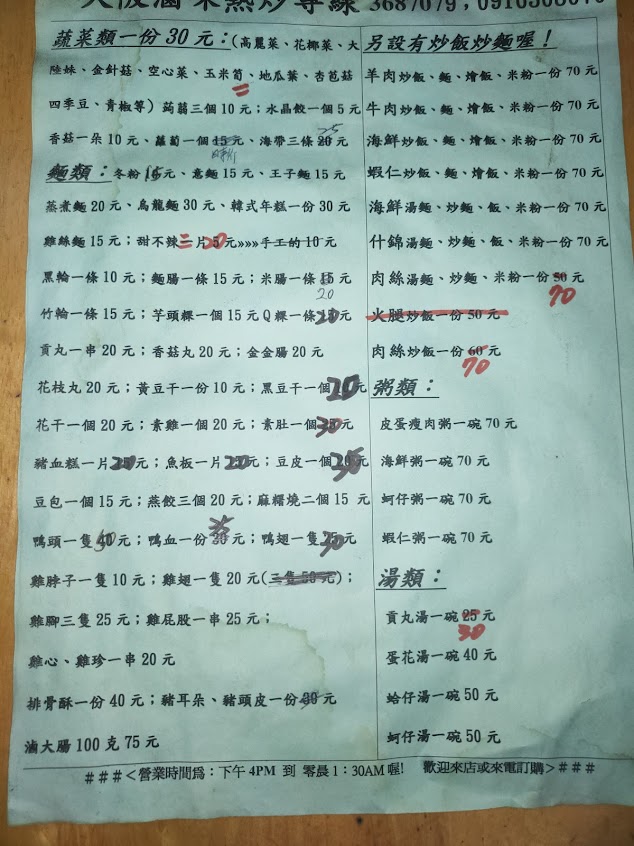 大阪滷味熱炒專線 3687079,
蔬菜類一份30元：(高麗菜、花椰菜、大
陸妹、金針菇、空心菜、玉米筍、地瓜葉、杏苞菇
四季豆、青椒等) 蒟蒻三個10元；水晶餃一個5元
香菇一朵10元、蘿蔔一個15元、海帶三條20元
25
麵類：冬粉15元、意麵15元、王子麵15元
蒸煮麵20元、烏龍麵30元、韓式年糕一份30元
雞絲麵15元；甜不辣三片20元»»»手工的10元
黑輪一條10元；麵腸一條15元；米腸一條15元
20
竹輪一條15元；芋頭粿一個15元Q粿一條20元
貢丸一串20元；香菇丸20元；金金腸20元
花枝丸20元；黃豆干一份10元；黑豆干一個20元
花干一個20元；素雞一個20元；素肚一個30元
豬血糕一片20元；魚板一片20元；豆皮一個35元
豆包一個15元；燕餃三個20元；麻糬燒二個15元
鴨頭一隻50元；鴨血一份30元；鴨翅一隻30元
35
雞脖子一隻10元；雞翅一隻20元(三隻50元)；
雞腳三隻25元；雞屁股一串25元；
雞心、雞珍一串20元
排骨酥一份40元；豬耳朵、豬頭皮一份30元
滷大腸100克75元
另設有炒飯炒麵喔！
羊肉炒飯、麵、燴飯、米粉一份70元
牛肉炒飯、麵、燴飯、米粉一份70元
海鮮炒飯、麵、燴飯、米粉一份70元
蝦仁炒飯、麵、燴飯、米粉一份70元
海鮮湯麵、炒麵、飯、米粉一份70元
什錦湯麵、炒麵、飯、米粉一份70元
肉絲湯麵、炒麵、米粉一份50元
70
火腿炒飯一份50元
肉絲炒飯一份60元
70
粥類：
皮蛋瘦肉粥一碗70元
海鮮粥一碗70元
蚵仔粥一碗70元
蝦仁粥一碗70元
湯類：
貢丸湯一碗25元
30
蛋花湯一碗40元
蛤仔湯一碗50元
蚵仔湯一碗50元
###<營業時間為：下午4PM 到 零晨1：30AM喔! 歡迎來店或來電訂購>###